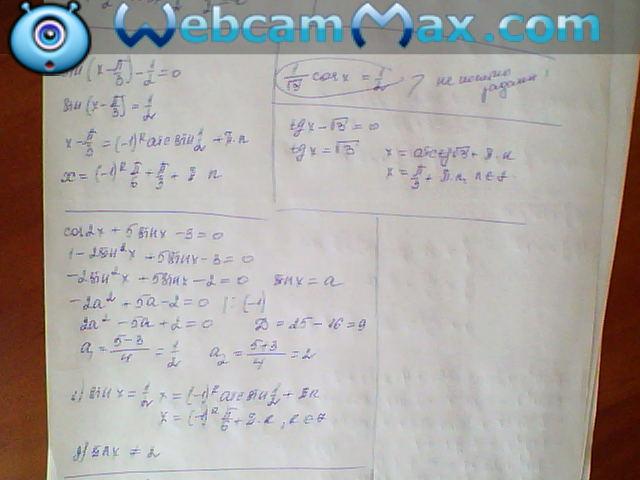 WebcamMax.com
sin(x-π/3)-1/2=0
sin(x-π/3)=1/2
x-π/3=(-1)^k arcsin 1/2+π.n
x=(-1)^k π/6+π/3+π n
1/√3 cos x = 1/2
не понятно
задание!
tg x-√3=0
tg x=√3
x=arctg√3+π.n
x=π/3+π.n, n∈z.
cos2x+5sinx-3=0
1-2sin²x+5sinx-3=0
-2sin²x+5sinx-2=0 sinx=a
-2a²+5a-2=0 |:(-1)
2a²-5a+2=0 D=25-16=9
a₁=5-3/4=1/2 a₂=5+3/4=2
1) sinx=1/2 x=(-1)^k arcsin 1/2+πk
x=(-1)^k π/6+π.k, k∈z
2) sinx≠2